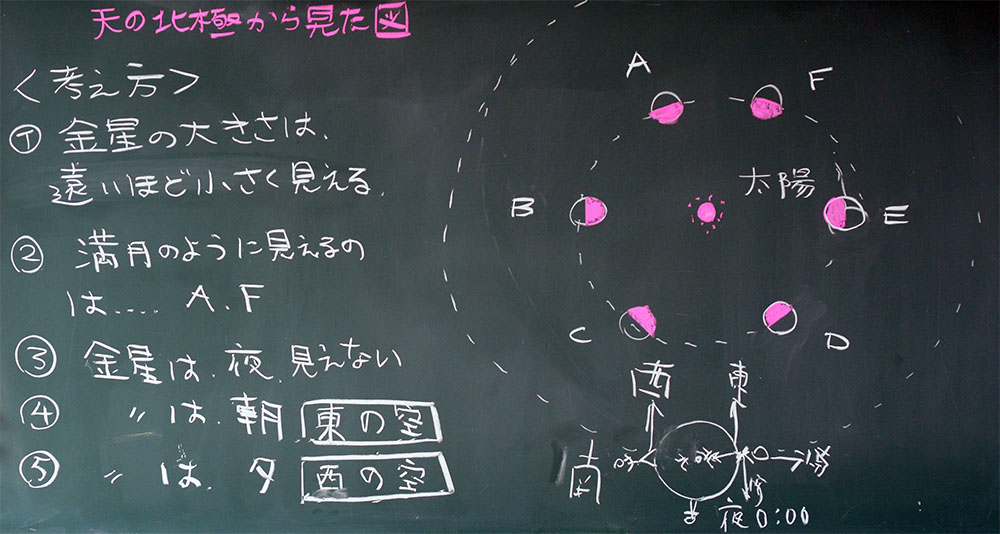 天の北極から見た図
<考え方>
① 金星の大きさは、
遠いほど小さく見える。
② 満月のように見えるの
は‥‥ A.F
③ 金星は、夜、見えない
④ 〃は、朝 東の空
⑤ 〃は、夕 西の空
A
F
太陽
B
E
C
D
西
東
南
夜0:00